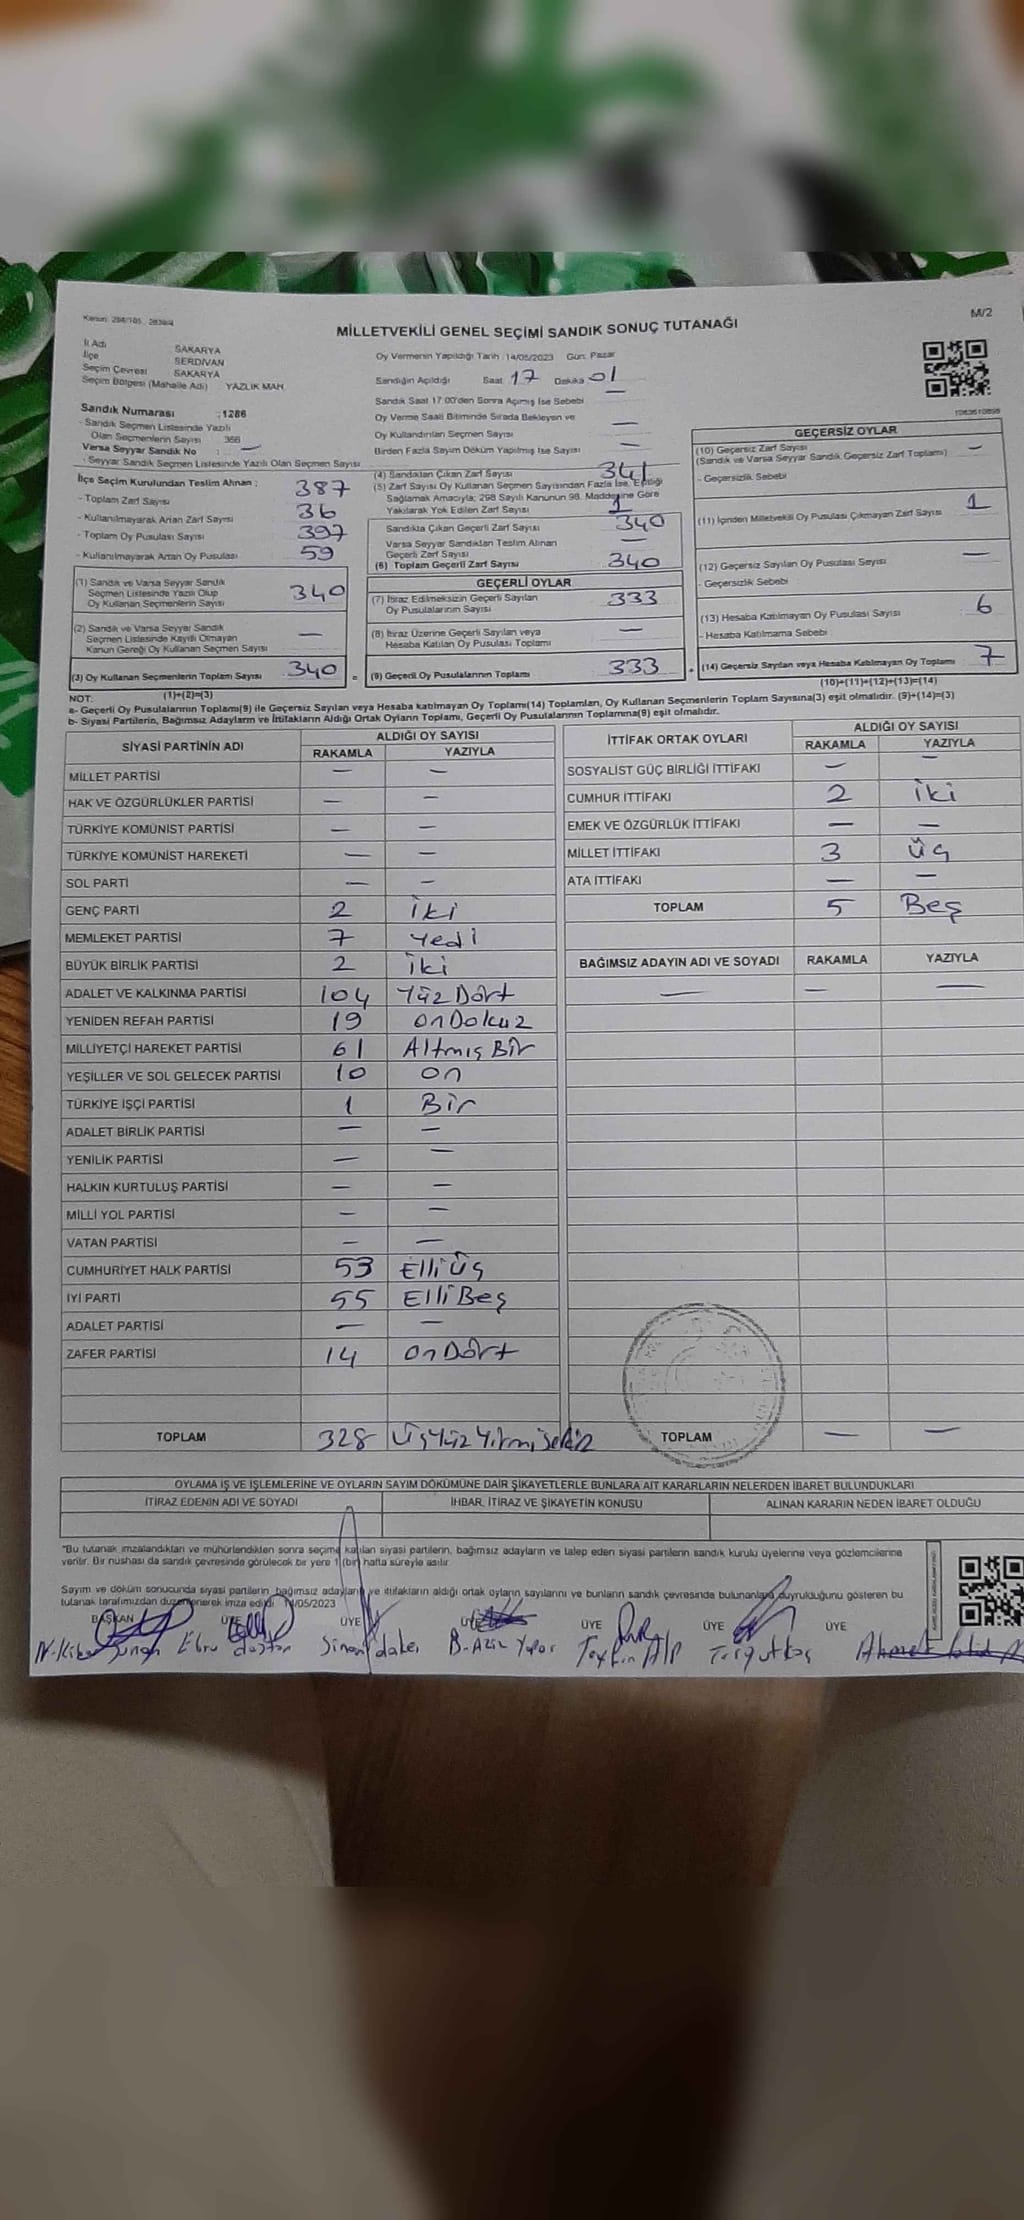 MİLLETVEKİLİ GENEL SEÇİMİ SANDIK SONUÇ TUTANAĞI
M/2
İl Adı SAKARYA
İlçe SERDİVAN
Seçim Çevresi SAKARYA
Seçim Bölgesi (Mahalle Adı) YAZLIK MAH
Sandık Numarası :1286
- Sandık Seçmen Listesinde Yazılı
Olan Seçmenlerin Sayısı 366
Varsa Seyyar Sandık No : —
- Seyyar Sandık Seçmen Listesinde Yazılı Olan Seçmen Sayısı
İlçe Seçim Kurulundan Teslim Alınan :
- Toplam Zarf Sayısı 387
- Kullanılmayarak Artan Zarf Sayısı 36
- Toplam Oy Pusulası Sayısı 397
- Kullanılmayarak Artan Oy Pusulası 59
(1) Sandık ve Varsa Seyyar Sandık
Seçmen Listesinde Yazılı Olup
Oy Kullanan Seçmenlerin Sayısı 340
(2) Sandık ve Varsa Seyyar Sandık
Seçmen Listesinde Kayıtlı Olmayan
Kanun Gereği Oy Kullanan Seçmen Sayısı —
(3) Oy Kullanan Seçmenlerin Toplam Sayısı 340 =
(1)+(2)=(3)
Oy Vermenin Yapıldığı Tarih :14/05/2023 Gün: Pazar
Sandığın Açıldığı Saat 17 Dakika 01
Sandık Saat 17:00'den Sonra Açımış İse Sebebi —
Oy Verme Saati Bitiminde Sırada Bekleyen ve
Oy Kullandırılan Seçmen Sayısı —
Birden Fazla Sayım Döküm Yapılmış İse Sayısı —
(4) Sandıktan Çıkan Zarf Sayısı 341
(5) Zarf Sayısı Oy Kullanan Seçmen Sayısından Fazla İse, Eşitliği
Sağlamak Amacıyla; 298 Sayılı Kanunun 98. Maddesine Göre
Yakılarak Yok Edilen Zarf Sayısı 1
Sandıkta Çıkan Geçerli Zarf Sayısı 340
Varsa Seyyar Sandıktan Teslim Alınan
Geçerli Zarf Sayısı —
(6) Toplam Geçerli Zarf Sayısı 340
GEÇERLİ OYLAR
(7) İtiraz Edilmeksizin Geçerli Sayılan
Oy Pusulalarının Sayısı 333
(8) İtiraz Üzerine Geçerli Sayılan veya
Hesaba Katılan Oy Pusulası Toplamı —
(9) Geçerli Oy Pusulalarının Toplamı 333 +
GEÇERSİZ OYLAR
(10) Geçersiz Zarf Sayısı —
(Sandık ve Varsa Seyyar Sandık Geçersiz Zarf Toplamı)
- Geçersizlik Sebebi
(11) İçinden Milletvekili Oy Pusulası Çıkmayan Zarf Sayısı 1
(12) Geçersiz Sayılan Oy Pusulası Sayısı —
- Geçersizlik Sebebi
(13) Hesaba Katılmayan Oy Pusulası Sayısı 6
- Hesaba Katılmama Sebebi
(14) Geçersiz Sayılan veya Hesaba Katılmayan Oy Toplamı 7
(10)+(11)+(12)+(13)=(14)
NOT:
a- Geçerli Oy Pusulalarının Toplamı(9) ile Geçersiz Sayılan veya Hesaba katılmayan Oy Toplamı(14) Toplamları, Oy Kullanan Seçmenlerin Toplam Sayısına(3) eşit olmalıdır. (9)+(14)=(3)
b- Siyasi Partilerin, Bağımsız Adayların ve İttifakların Aldığı Ortak Oyların Toplamı, Geçerli Oy Pusulalarının Toplamına(9) eşit olmalıdır.
SİYASİ PARTİNİN ADI ALDIĞI OY SAYISI
RAKAMLA YAZIYLA
MİLLET PARTİSİ — —
HAK VE ÖZGÜRLÜKLER PARTİSİ — —
TÜRKİYE KOMÜNİST PARTİSİ — —
TÜRKİYE KOMÜNİST HAREKETİ — —
SOL PARTİ — —
GENÇ PARTİ 2 iki
MEMLEKET PARTİSİ 7 yedi
BÜYÜK BİRLİK PARTİSİ 2 iki
ADALET VE KALKINMA PARTİSİ 104 Yüz Dört
YENİDEN REFAH PARTİSİ 19 onDokuz
MİLLİYETÇİ HAREKET PARTİSİ 61 Altmış Bir
YEŞİLLER VE SOL GELECEK PARTİSİ 10 on
TÜRKİYE İŞÇİ PARTİSİ 1 Bir
ADALET BİRLİK PARTİSİ — —
YENİLİK PARTİSİ — —
HALKIN KURTULUŞ PARTİSİ — —
MİLLİ YOL PARTİSİ — —
VATAN PARTİSİ — —
CUMHURİYET HALK PARTİSİ 53 Elli üç
İYİ PARTİ 55 Elli Beş
ADALET PARTİSİ — —
ZAFER PARTİSİ 14 on Dört
TOPLAM 328 üçYüz Yirmi Sekiz
İTTİFAK ORTAK OYLARI ALDIĞI OY SAYISI
RAKAMLA YAZIYLA
SOSYALİST GÜÇ BİRLİĞİ İTTİFAKI — —
CUMHUR İTTİFAKI 2 iki
EMEK VE ÖZGÜRLÜK İTTİFAKI — —
MİLLET İTTİFAKI 3 üç
ATA İTTİFAKI — —
TOPLAM 5 Beş
BAĞIMSIZ ADAYIN ADI VE SOYADI RAKAMLA YAZIYLA
— — —
TOPLAM — —
OYLAMA İŞ VE İŞLEMLERİNE VE OYLARIN SAYIM DÖKÜMÜNE DAİR ŞİKAYETLERLE BUNLARA AİT KARARLARIN NELERDEN İBARET BULUNDUKLARI
İTİRAZ EDENİN ADI VE SOYADI İHBAR, İTİRAZ VE ŞİKAYETİN KONUSU ALINAN KARARIN NEDEN İBARET OLDUĞU
"Bu tutanak imzalandıktan ve mühürlendikten sonra seçime katılan siyasi partilerin, bağımsız adayların ve talep eden siyasi partilerin sandık kurulu üyelerine veya gözlemcilerine
verilir. Bir nüshası da sandık çevresinde görülecek bir yere 1 (bir) hafta süreyle asılır.
Sayım ve döküm sonucunda siyasi partilerin, bağımsız adayların ve ittifakların aldığı ortak oyların sayılarını ve bunların sandık çevresinde bulunanlara duyrulduğunu gösteren bu
tutanak tarafımızdan düzenlenerek imza edildi. 14/05/2023
BAŞKAN ÜYE ÜYE ÜYE ÜYE ÜYE ÜYE
Ebru Sinan B. Aziz Tayfun Alp Turgut Koç